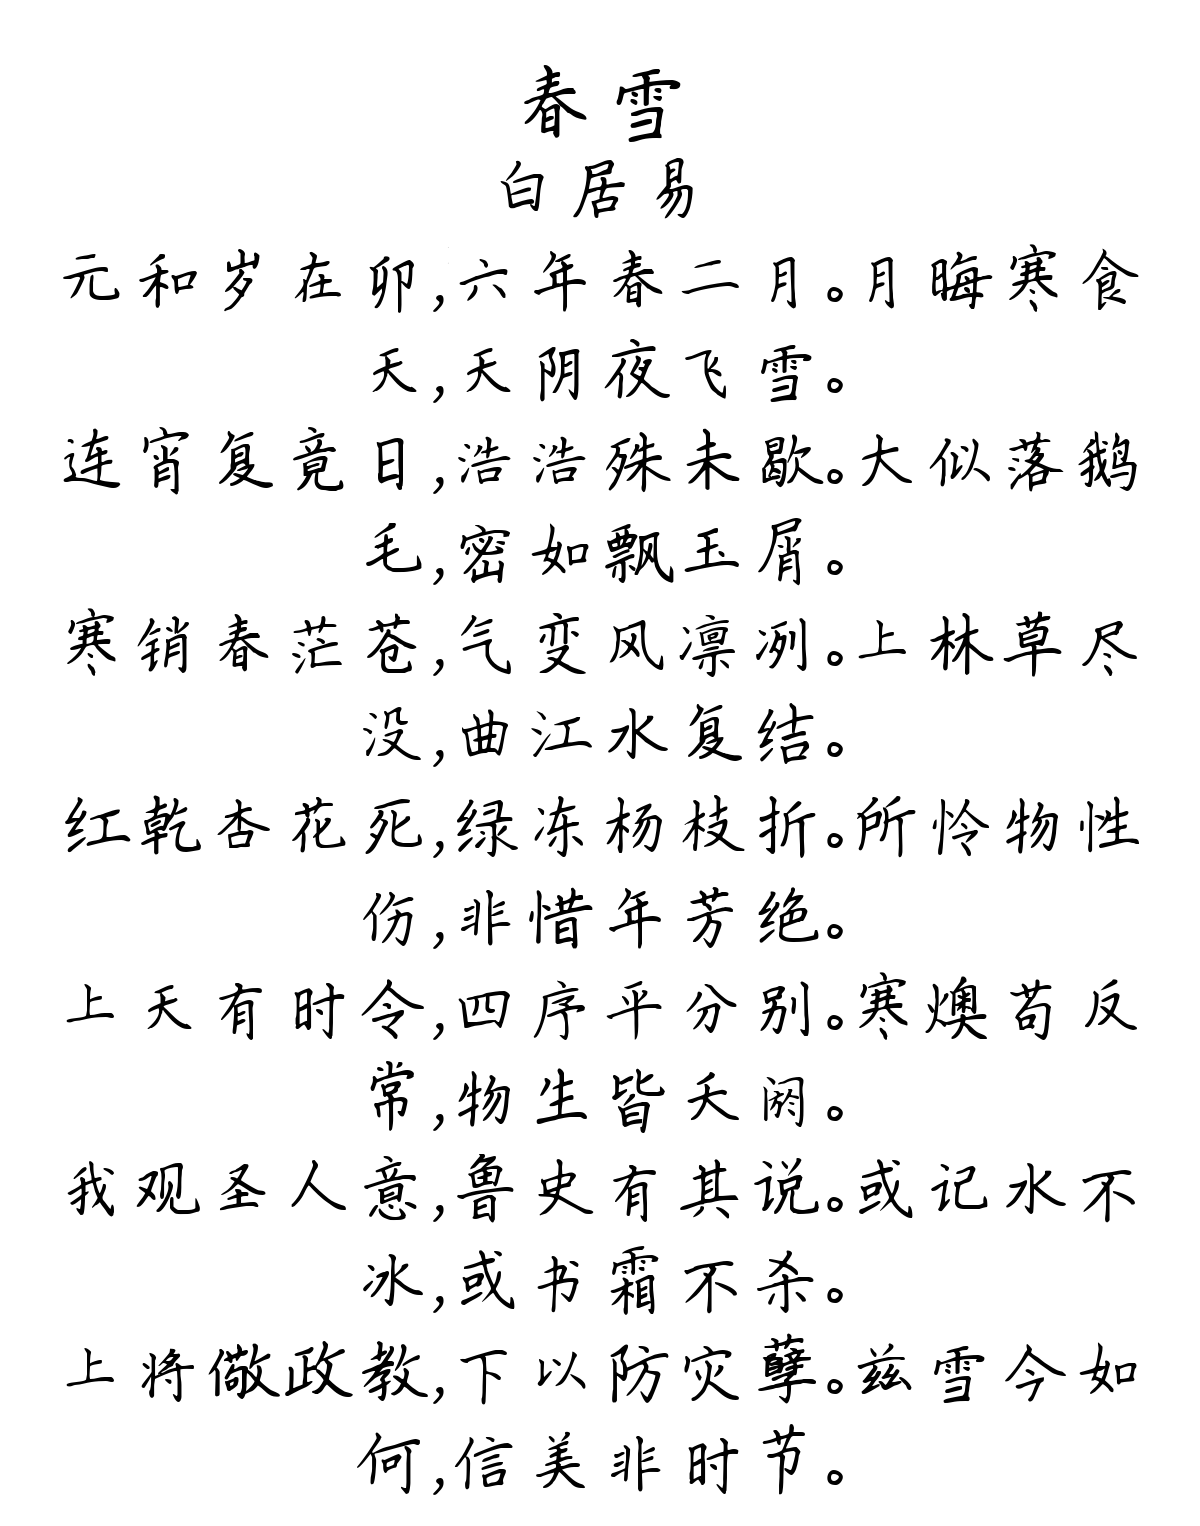 春雪
白居易
元和岁在卯,六年春二月。月晦寒食
天,天阴夜飞雪。
连宵复竟日,浩浩殊未歇。大似落鹅
毛,密如飘玉屑。
寒销春茫苍,气变风凛冽。上林草尽
没,曲江水复结。
红乾杏花死,绿冻杨枝折。所怜物性
伤,非惜年芳绝。
上天有时令,四序平分别。寒燠苟反
常,物生皆夭阏。
我观圣人意,鲁史有其说。或记水不
冰,或书霜不杀。
上将儆政教,下以防灾孽。兹雪今如
何,信美非时节。